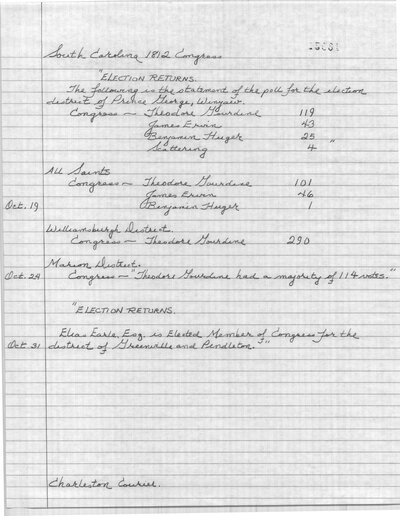 South Carolina 1812 Congress
"ELECTION RETURNS.
The following is the statement of the poll for the election
district of Prince George, Winyaw.
Congress ~ Theodore Gourdine 119
James Ervin 43
Benjamin Huger 25
Scattering 4 "
All Saints
Congress ~ Theodore Gourdine 101
James Ervin 46
Oct. 19 Benjamin Huger 1
Williamsburgh District.
Congress ~ Theodore Gourdine 290
Marion District.
Oct. 24 Congress ~ "Theodore Gourdine had a majority of 114 votes."
"ELECTION RETURNS.
Elias Earle, Esq. is Elected Member of Congress for the
Oct 31 district of Greenville and Pendleton."
Charleston Courier.